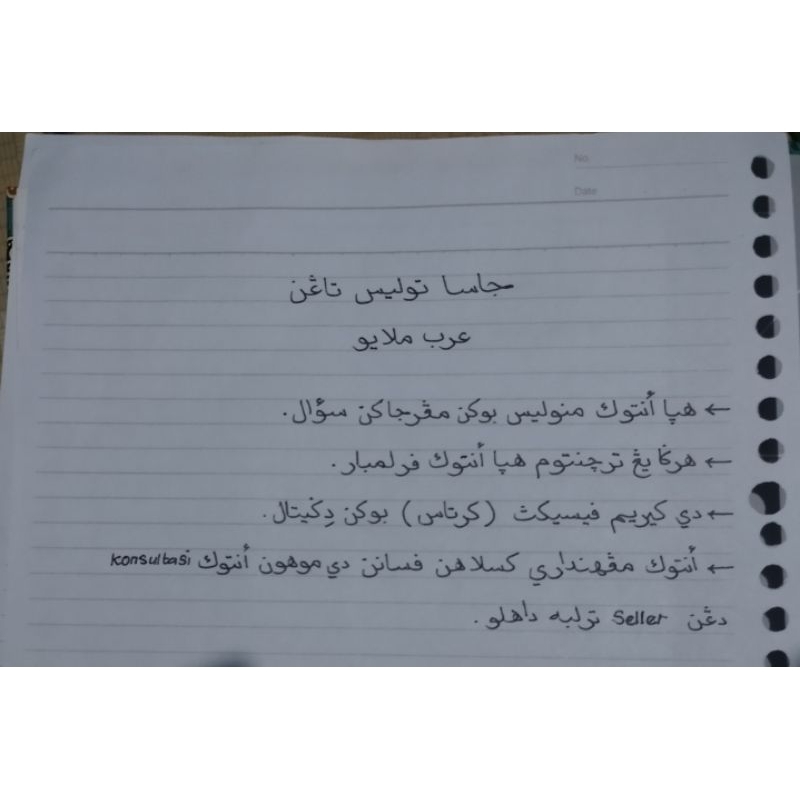 No.
Date
جاسا توليس تاڠن
عرب ملايو
← هيا أنتوك منوليس بوكن مڠرجاكن سؤال.
← هرݢا يڠ ترچنتوم هيا أنتوك فرلمبار.
← دي كيريم فيسيكث (كرتاس) بوكن دِݢيتال.
← أنتوك مڠهنداري كسلاهن فسانن دي موهون أنتوك konsultasi
دڠن seller ترلبه داهلو.